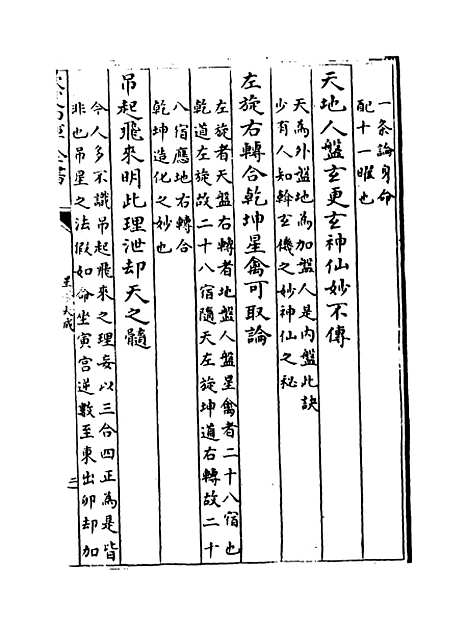 一条論身命
配十一曜也
天地人盤玄更玄神仙妙不傳
天為外盤地為加盤人是內盤此訣
少有人知斡玄機之妙神仙之秘
左旋右轉合乾坤星禽可取論
左旋者天盤右轉者地盤人盤星禽者二十八宿也
乾道左旋故二十八宿隨天左旋坤道右轉故二十
八宿應地右轉合
乾坤造化之妙也
吊起飛來明此理泄却天之髓
今人多不識吊起飛來之理妄以三合四正為是皆
非也吊星之法假如命坐寅宫逆數至東出卯却加
星 大成
二